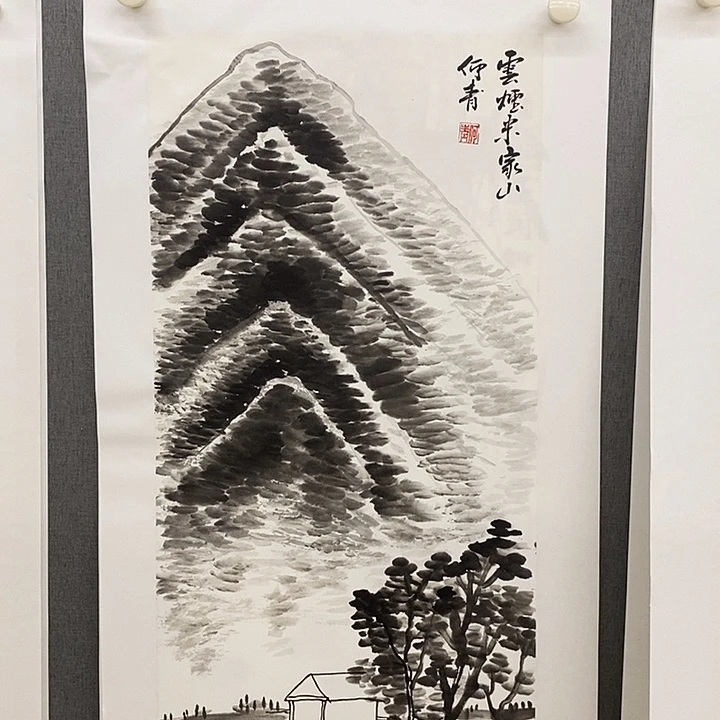 雲煙米家山
何青